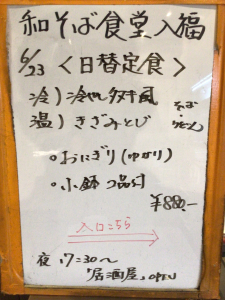 和そば食堂入福
6/23 <日替定食>
冷)冷し
温)きざみとじ
そば
うどん
。おにぎり(ゆかり)
。小鉢 2品付
¥880-
入口こちら
夜 17:30〜
"居酒屋" OPEN